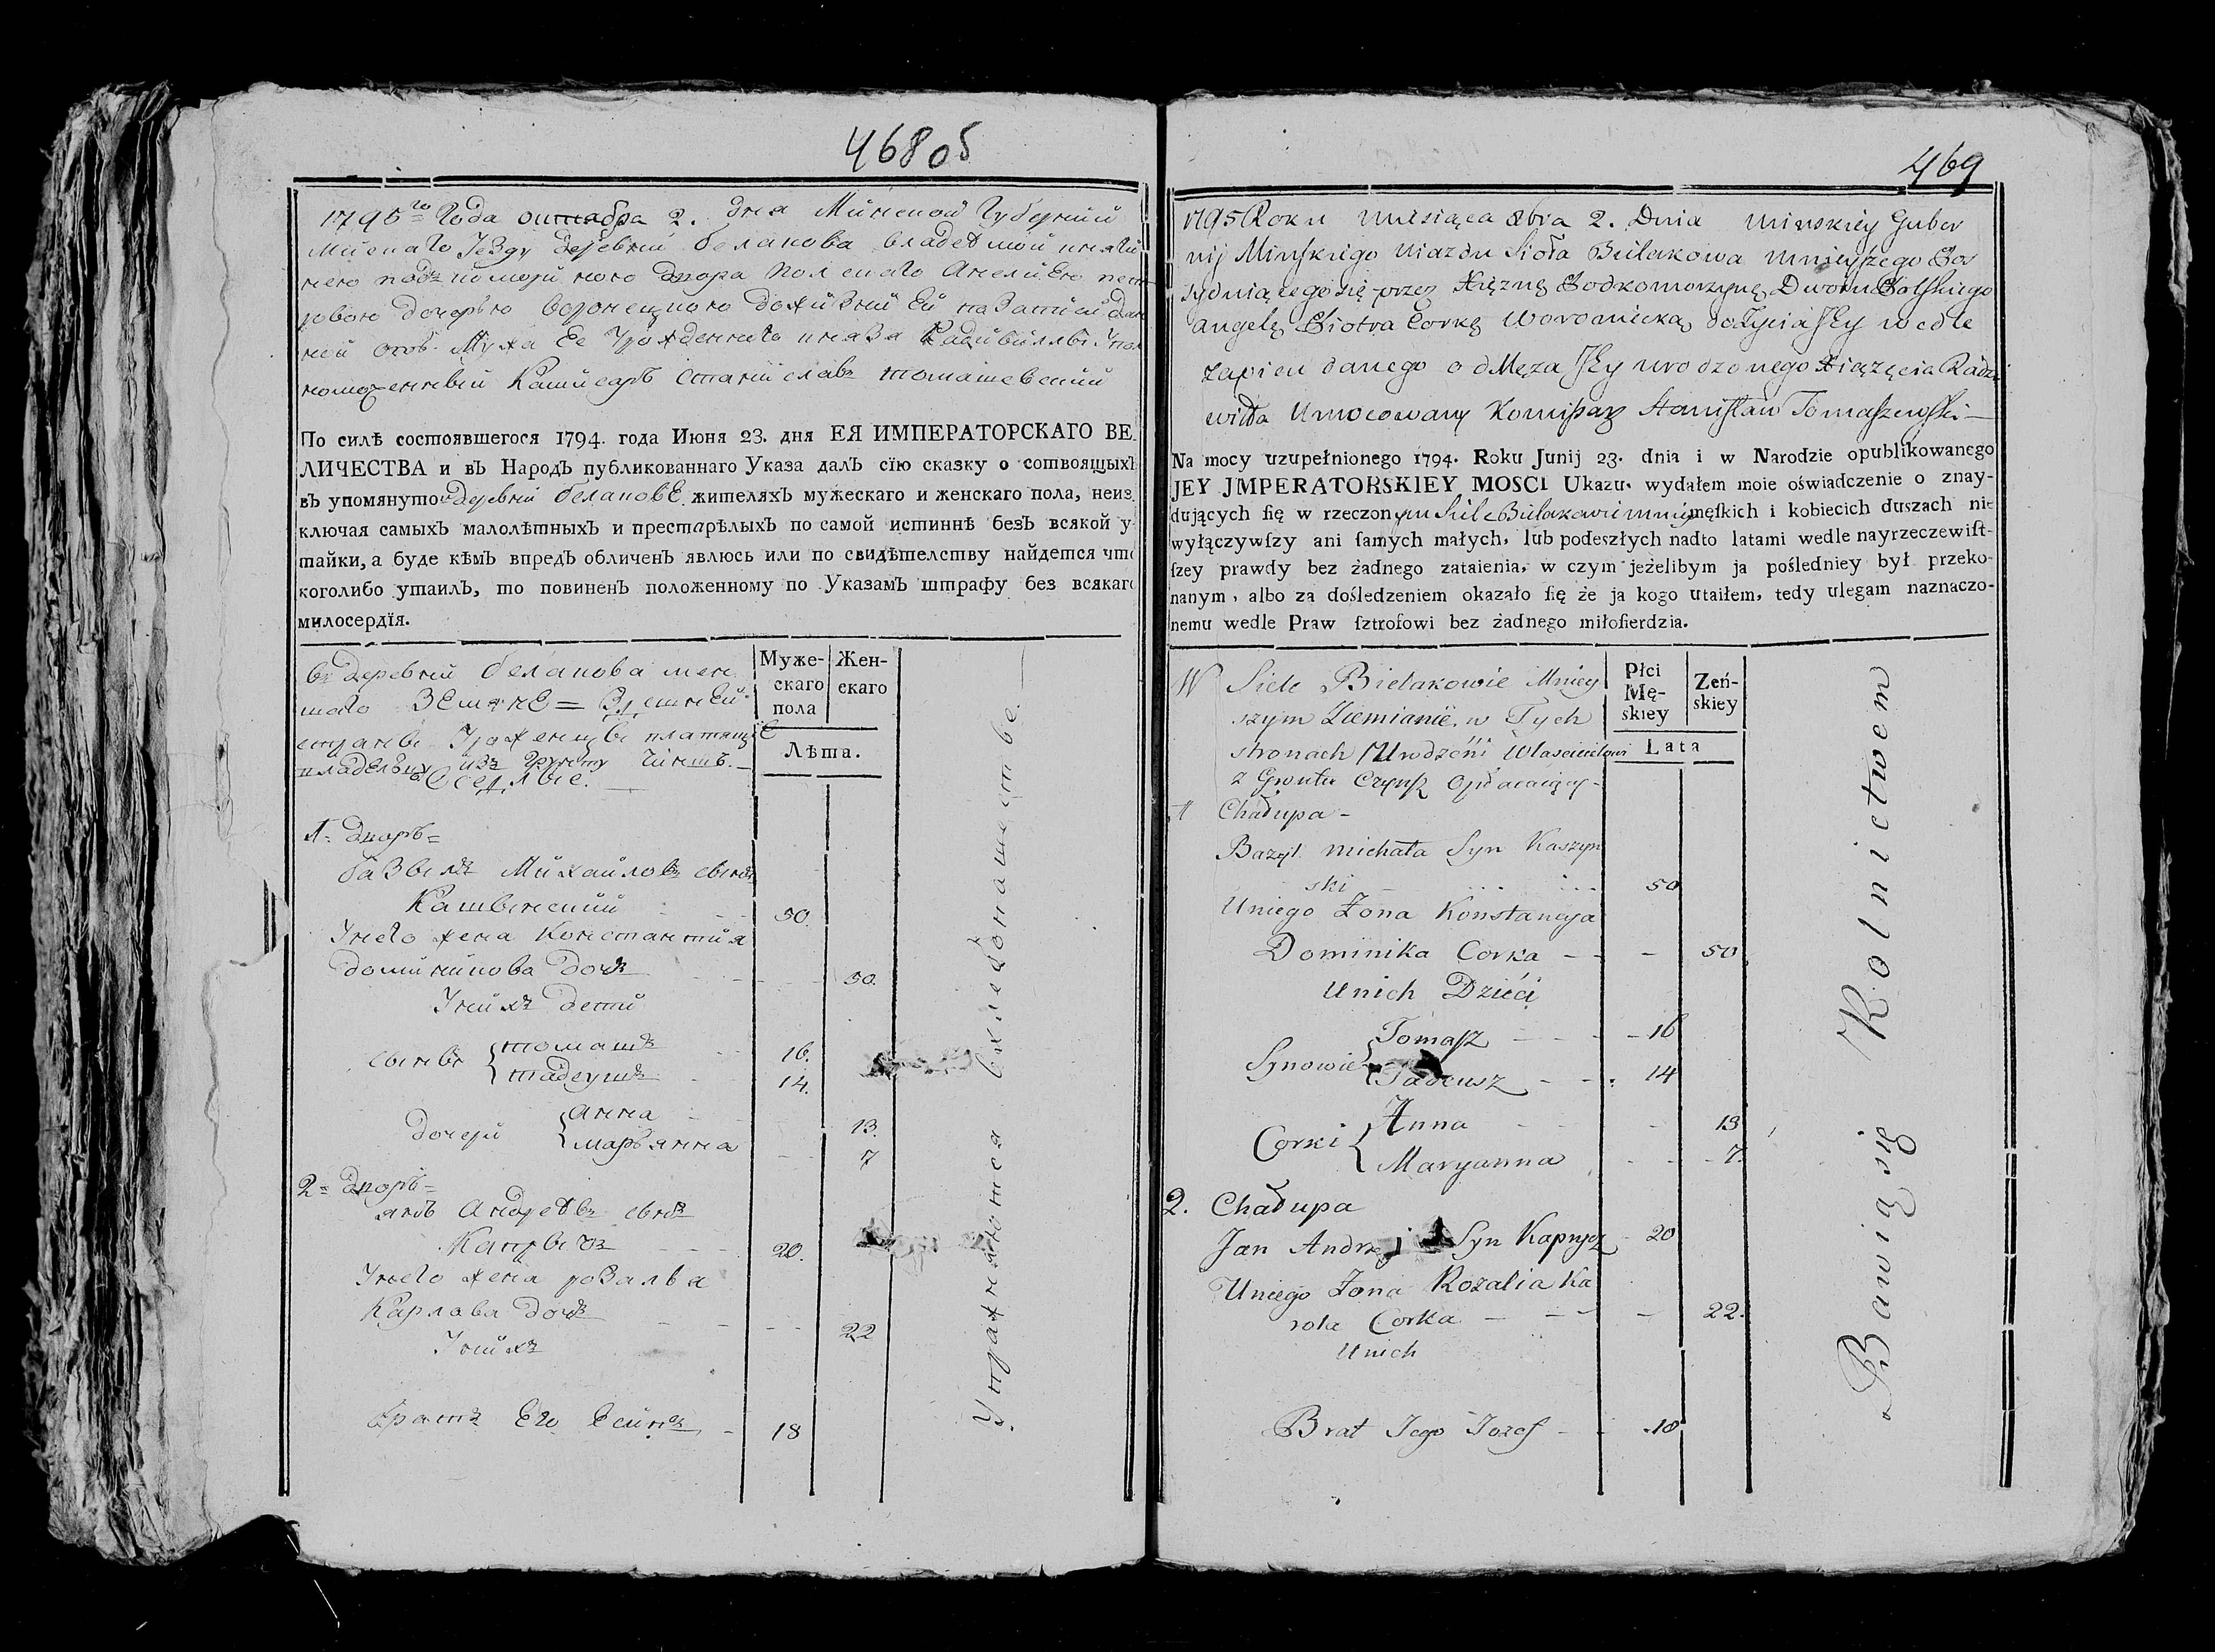 468 об
1795го Года октабра 2. дня Минской Губерний
Минскаго Уезду деревни белакова владемой княги
Камисаръ Станиславъ томашевский
По силѣ состоявшегося 1794. года Июня 23. дня ЕЯ ИМПЕРАТОРСКАГО ВЕ-
ЛИЧЕСТВА и въ Народъ публикованнаго Указа далъ сїю сказку о сотвоящыхъ
въ упомянутой деревни белаковЕ жителяхъ мужескаго и женскаго пола, неиз
ключая самыхъ малолѣтныхъ и престарѣлыхъ по самой истиннѣ безъ всякой у-
тайки, а буде кѣмъ впредъ обличенъ явлюсь или по свидѣтелству найдется что
коголибо утаилъ, то повиненъ положенному по Указамъ штрафу без всякаго
милосердїя.
въ деревни белакова мен
шаго ЗЕмянЕ =
платящиЕ
изъ грунту чиншъ.
Оседлые.
Муже-
скаго
пола
Жен-
скаго
Лѣта.
1= дворъ=
базылъ Михайловъ сынъ
Кашынский 50.
Унего жена константия
доминикова дочъ 50.
Унихъ дети
сыны { томашъ 16.
тадеушъ 14.
дочери { анна 13.
марьянна 7
2= дворъ=
янъ Андреевъ сынъ
Капрычъ 20.
Унего жена розалья
Карлова дочъ 22
Унихъ
братъ Его 18
Упражняются хлебопашествомъ
469
1795 Roku miesiąca 8bra 2. Dnia Minskiey Guber
nij Minskiego Uiazdu Sioła Bielakowa mnieyszego Po
sydniącego się przez Xiężnę Podkomorzynę Dworu Polskiego
angelę Piotra Corkę Woroniecką dożycia Jey wedle
zapisu danego od Męża Jey urodzonego Xiążęcia Radzi
wiłła Umocowany Komisarz Stanisław Tomaszewski
Na mocy uzupełnionego 1794. Roku Junij 23. dnia i w Narodzie opublikowanego
JEY JMPERATORSKIEY MOSCI Ukazu, wydałem moie oświadczenie o znay-
dujących ſię w rzeczonym Siele Bielakowie mniey męſkich i kobiecich duszach nie
wyłączywſzy ani ſamych małych, lub podeszłych nadto latami wedle nayrzeczewiſt-
ſzey prawdy bez żadnego zataienia, w czym jeżelibym ja poſledniey był przeko-
nanym, albo za doſledzeniem okazało ſię że ja kogo utaiłem, tedy ulegam naznaczo-
nemu wedle Praw ſztrofowi bez żadnego miłoſierdzia.
W Siele Bielakowie Mniey
szym Ziemianie w Tych
stronach Urodzeni Włascicielowi
z Gruntu Czynsz Opłacaiący
Płci
Mę-
skiey
Zeń-
skiey
Lata
1 Chałupa -
Bazyl michała Syn Kaszyn
ski 50
Uniego Żona Konstancya
Dominika Corka 50.
Unich Dzieći
Synowie { Tomasz 16
Tadeusz 14
Corki { Anna 13
Maryanna 7.
2. Chałupa
Jan Andrzej Syn Kaprycz 20
Uniego Żona Rozalia Ka
rola Corka 22.
Unich
Brat Jego Jozef 18
Bawią się Rolnictwem